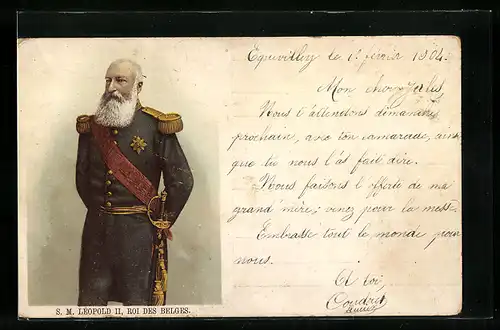 le 1 février 1904.
Mon cher Jules,
Nous t'attendons dimanche
prochain, avec ton camarade, ains
que tu nous l'as fait dire.
Nous faisons l'offerte de ma
grand'mère; venez pour la messe.
Embrasse tout le monde pour
nous.
A toi,
S. M. LEOPOLD II, ROI DES BELGES.